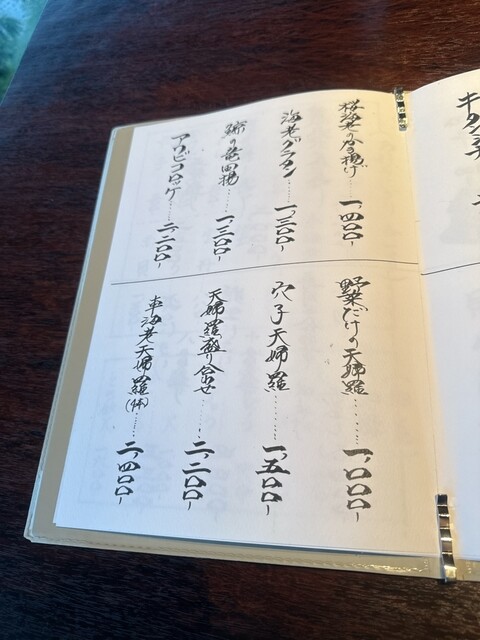 桜海老のかき揚げ……一、四〇〇-
海老グラタン……一、三〇〇-
の竜田揚……一、三〇〇-
アワビコロッケ……二、二〇〇-
野菜だけの天婦羅……一、〇〇〇-
穴子天婦羅……一、五〇〇-
天婦羅盛り合せ……二、二〇〇-
車海老天婦羅(4本)……二、四〇〇-